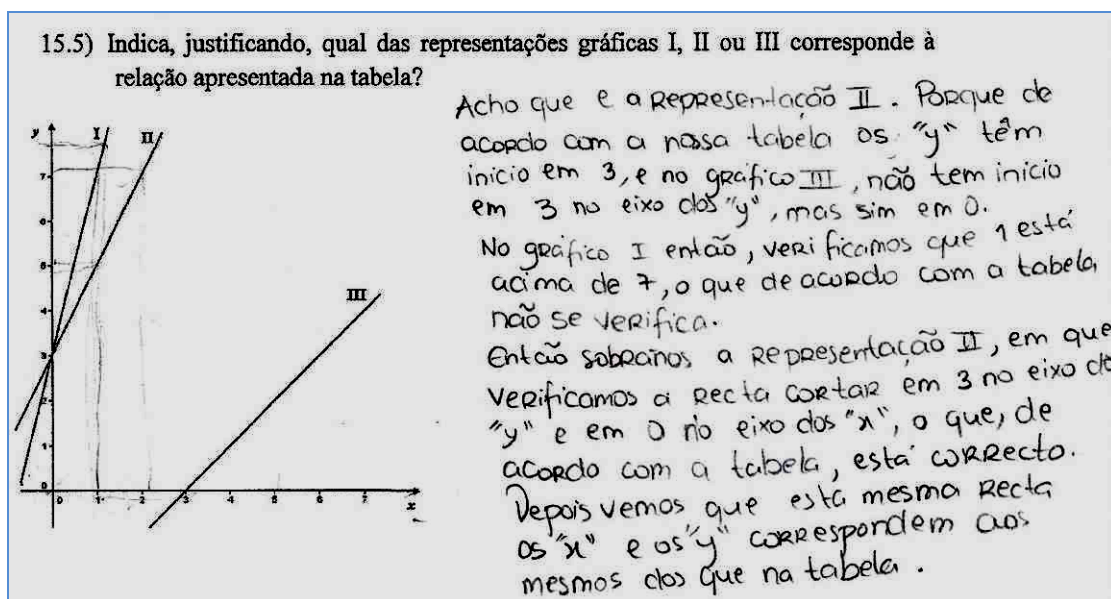 15.5) Indica, justificando, qual das representações gráficas I, II ou III corresponde à
relação apresentada na tabela?
Acho que e a REPRESENTAÇÃO II. PORQUE de
acordo com a nossa tabela os "y" têm
inicio em 3, e no gráfico III, não tem inicio
em 3 no eixo dos "y", mas sim em 0.
No gráfico I então, verificamos que 1 está
acima de 7, o que de acordo com a tabela
não se verifica.
Então sobranos a REPRESENTAÇÃO II, em que
verificamos a recta cortar em 3 no eixo do
"y" e em 0 no eixo dos "x", o que, de
acordo com a tabela, está correcto.
Depois vemos que está mesma recta
os "x" e os "y" correspondem aos
mesmos dos que na tabela.
y
I
II
7
6
5
4
III
3
2
1
0
0 1 2 3 4 5 6 7
x